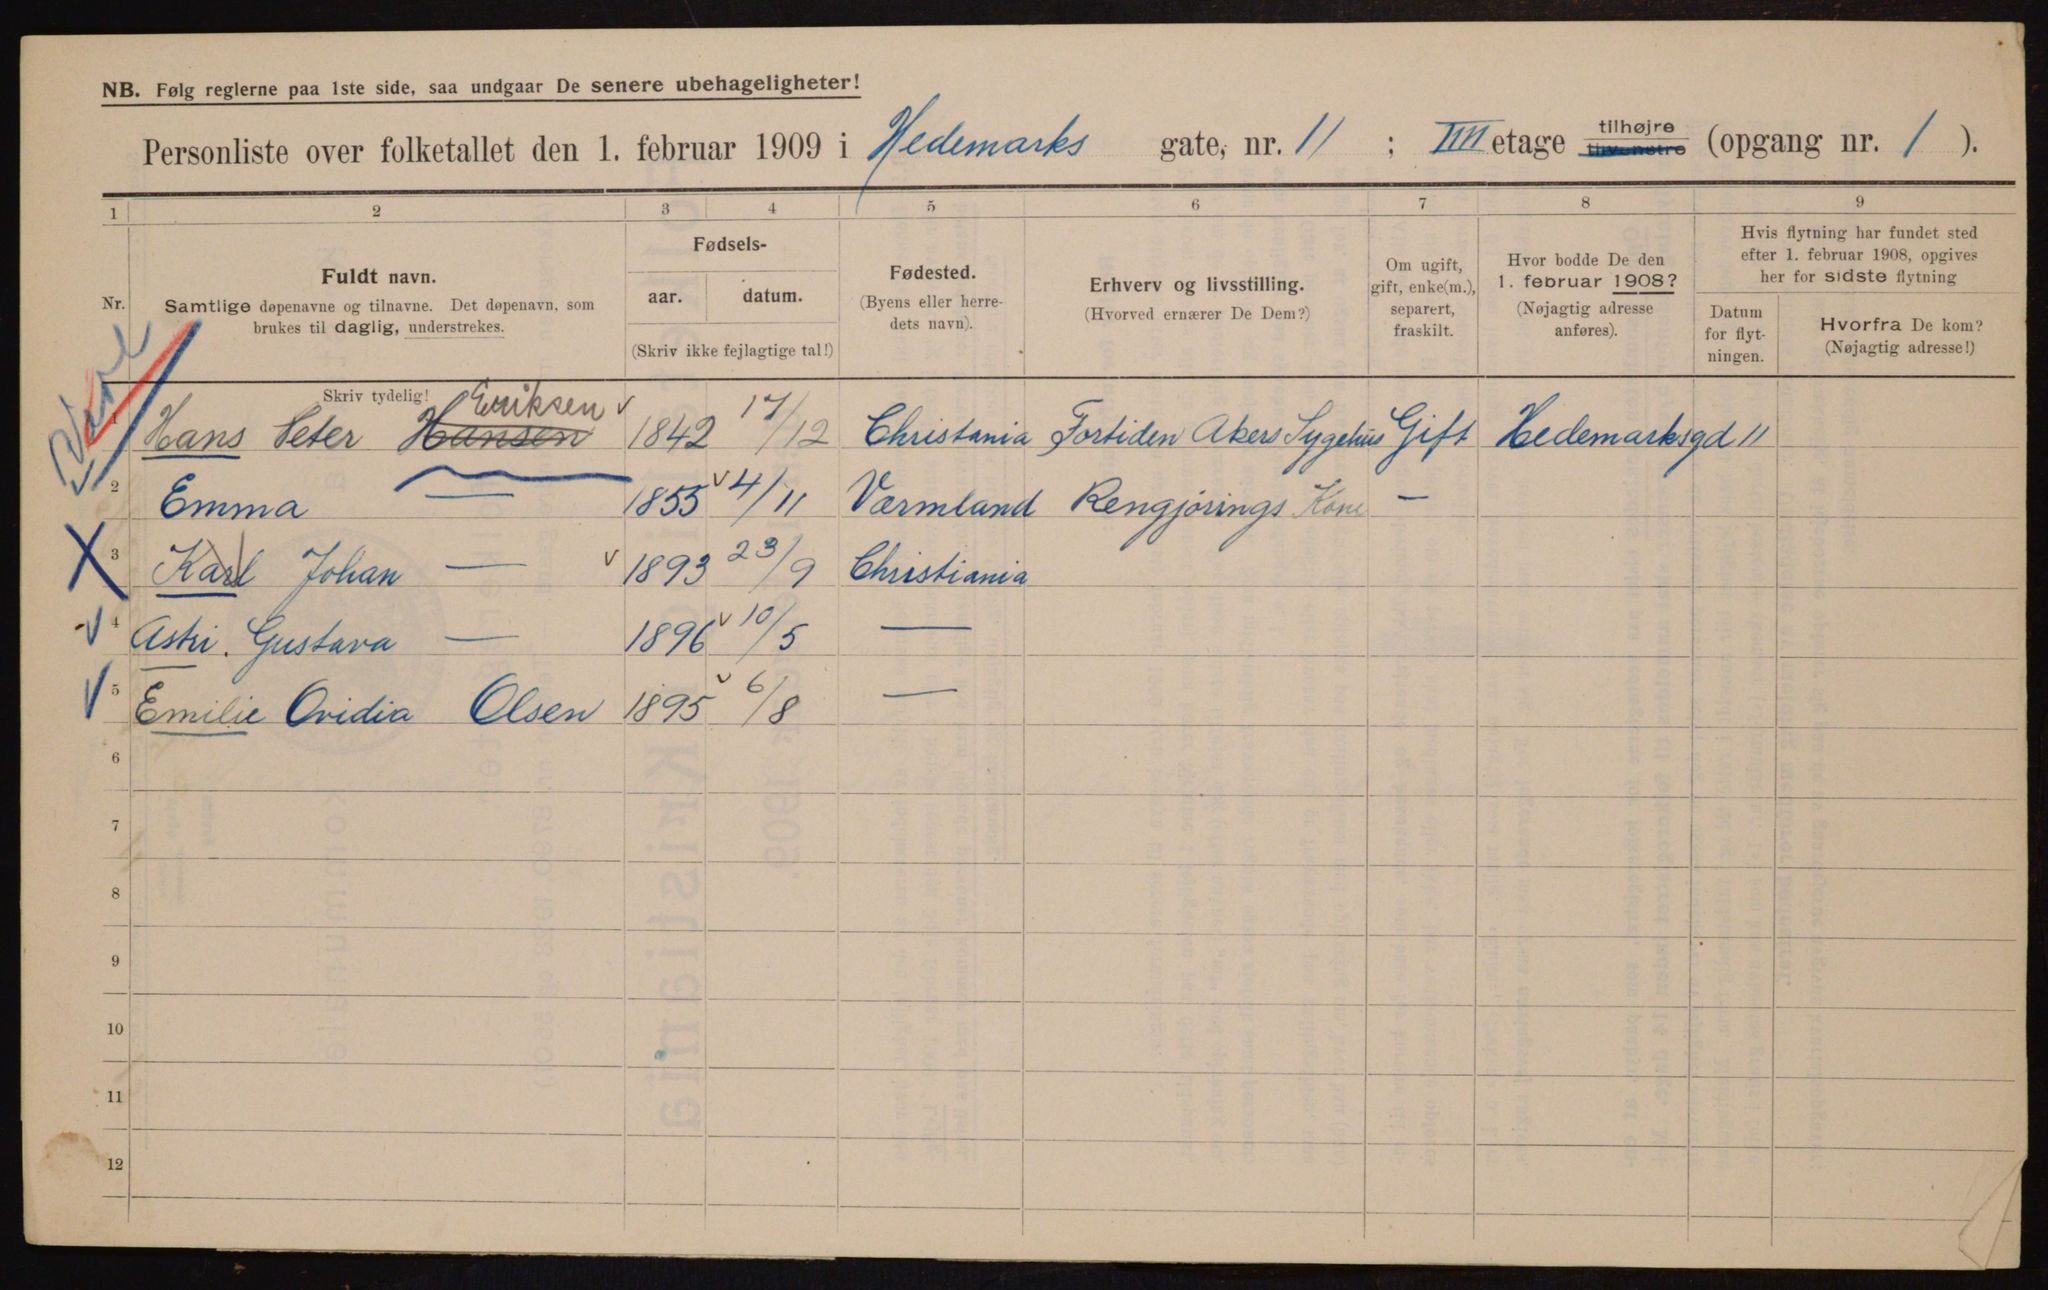 NB. Følg reglerne paa 1ste side, saa undgaar De senere ubehageligheter!
Personliste over folketallet den 1. februar 1909 i Hedemarks gate, nr. 11 ; IIII etage tilhøjre tilvenstre (opgang nr. 1 ).
1 2 3 4 5 6 7 8 9
Nr.
Fuldt navn.
Samtlige døpenavne og tilnavne. Det døpenavn, som
brukes til daglig, understrekes.
Skriv tydelig!
Fødsels-
aar. datum.
(Skriv ikke fejlagtige tal!)
Fødested.
(Byens eller herre-
dets navn).
Erhverv og livsstilling.
(Hvorved ernærer De Dem?)
Om ugift,
gift, enke(m.),
separert,
fraskilt.
Hvor bodde De den
1. februar 1908?
(Nøjagtig adresse
anføres).
Hvis flytning har fundet sted
efter 1. februar 1908, opgives
her for sidste flytning
Datum
for flyt-
ningen.
Hvorfra De kom?
(Nøjagtig adresse!)
Eriksen v
1 Hans Peter Hansen 1842 17/12 Christania Fortiden Akers Sygehus Gift Hedemarksgd 11
2 Emma — 1855 v 4/11 Værmland Rengjørings Kone —
X 3 Karl Johan — v 1893 23/9 Christiania
v 4 Astri. Gustava — 1896 v 10/5 —
v 5 Emilie Ovidia Olsen 1895 v 6/8 —
6
7
8
9
10
11
12